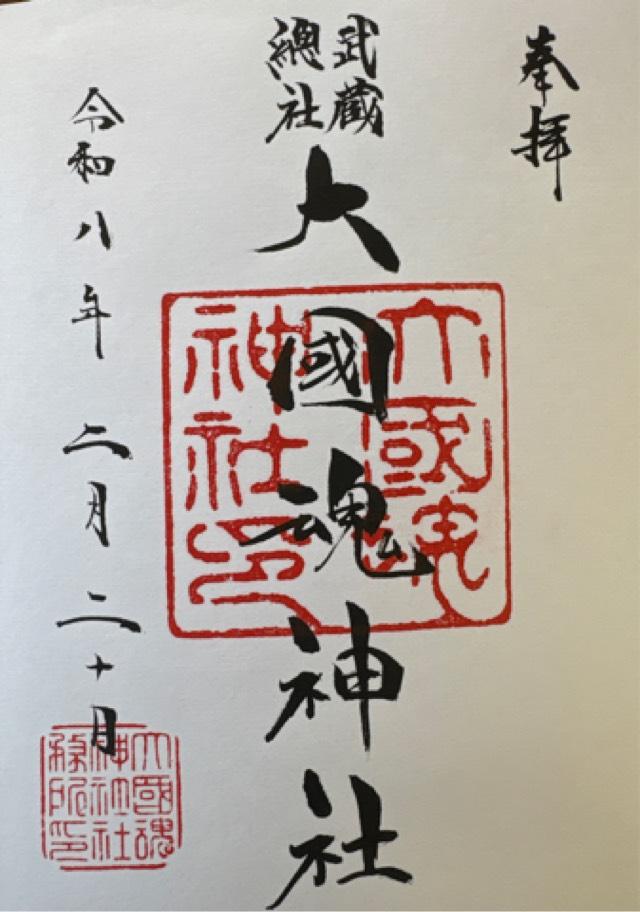 奉拝
武蔵
總社
大國魂神社
令和八年 二月 二十日
大國魂
神社印
大國魂
神社社
務所印